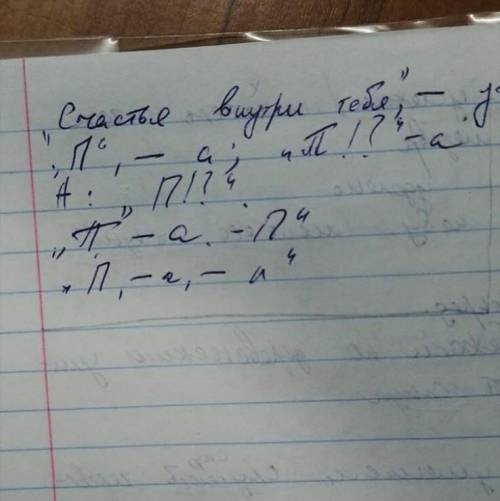 „Счастья внутри тебя”, – у
„П“, – а; „П!?“ – а
А: „П!?“.
„П” – а. – П“
„П, – а, – п“